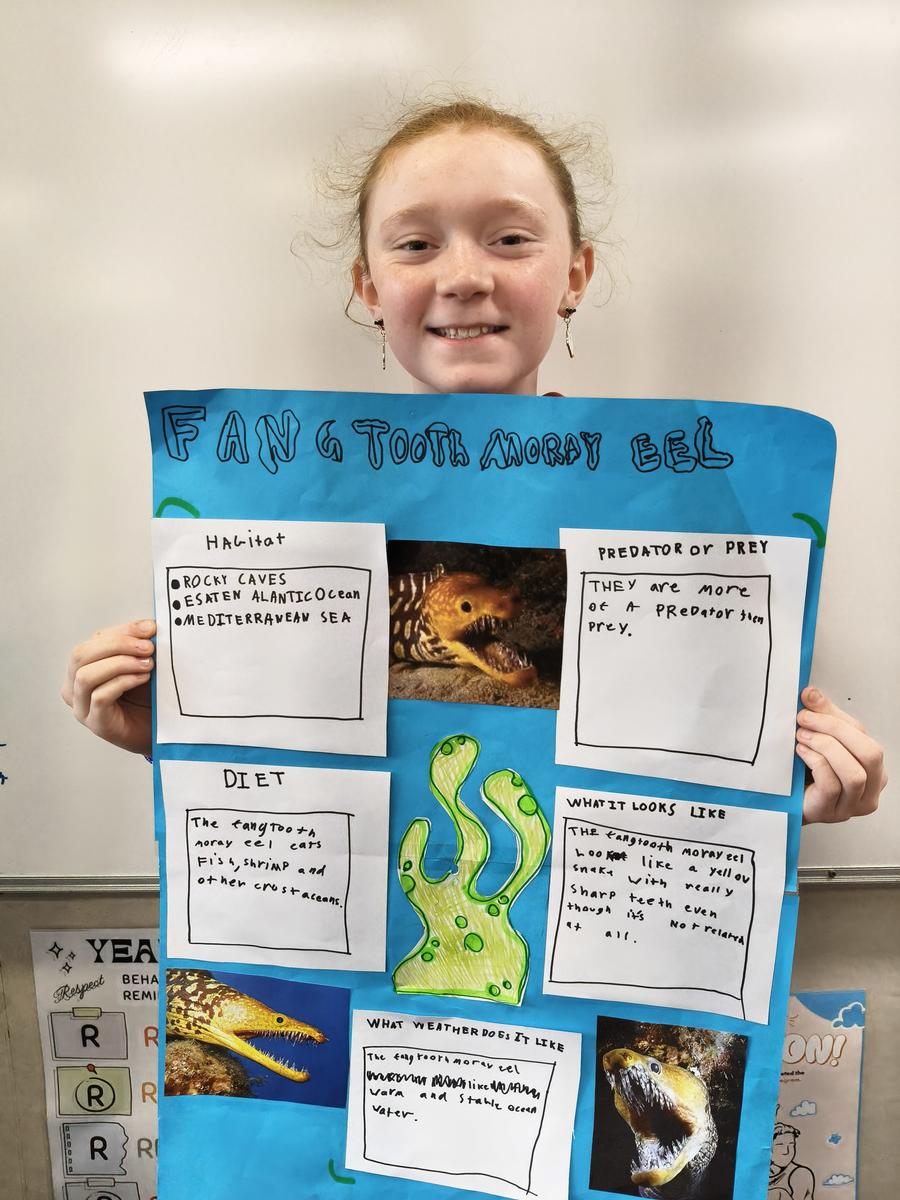 FANGTOOTH MORAY EEL
HAbitat
ROCKY CAVES
ESATEN ALANTIC OCean
MEDITERRANEAN SEA
PREDATOR Or PREY
THEY are more
of A PReDator then
Prey.
DIET
The fangtooth
moray eel eats
Fish, shrimp and
other crostaceans.
WHAT IT LOOKS LIKE
THE fangtooth moray eel
Look like a yellow
snake with really
Sharp teeth even
though it's Not related
at all.
WHAT WEATHER DOES IT LIKE
The fangtooth moray eel
like
warm and stable ocean
water.
YEA
Respect
BEHA
REMI
R
R
R
R
R
R
ON!